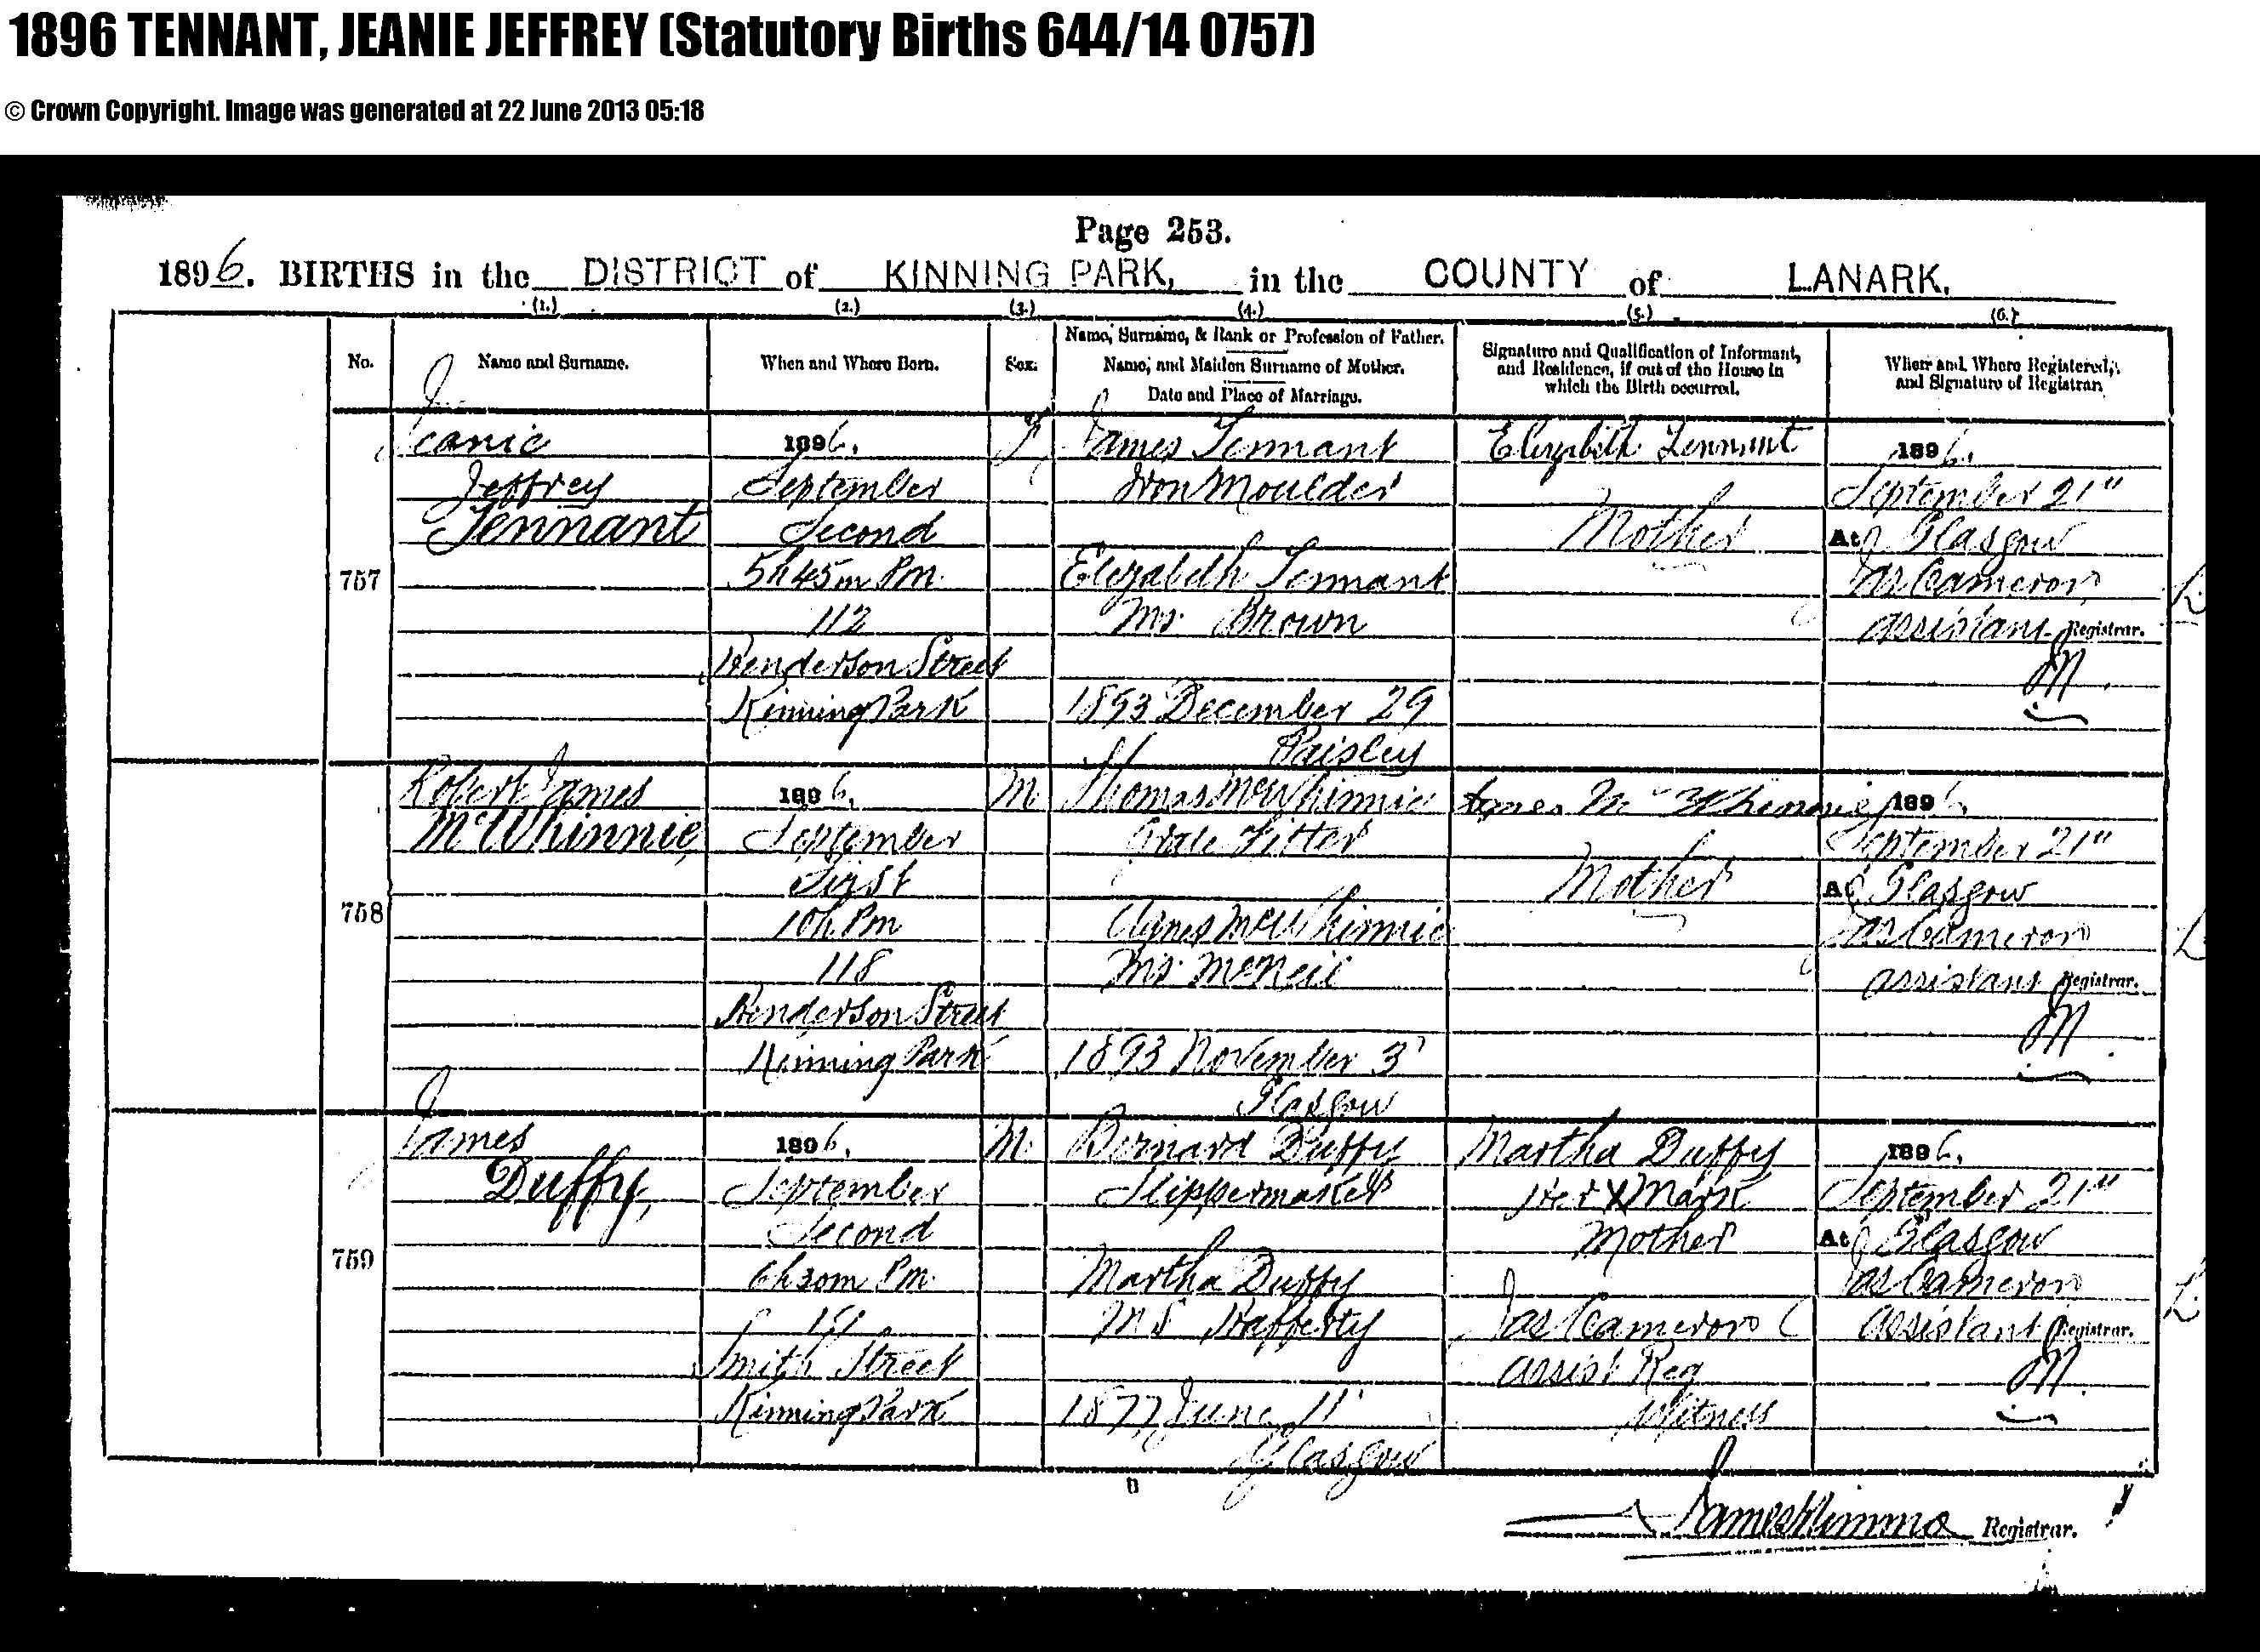 1896 TENNANT, JEANIE JEFFREY (Statutory Births 644/14 0757)
© Crown Copyright. Image was generated at 22 June 2013 05:18
Page 253.
1896. BIRTHS in the DISTRICT of KINNING PARK, in the COUNTY of LANARK.
(1.) (2.) (3.) (4.) (5.) (6.)
No.
Name and Surname.
When and Where Born.
Sex.
Name, Surname, & Rank or Profession of Father.
Name, and Maiden Surname of Mother.
Date and Place of Marriage.
Signature and Qualification of Informant,
and Residence, if out of the House in
which the Birth occurred.
When and Where Registered,
and Signature of Registrar.
757
Jeanie
Jeffrey
Tennant
1896.
September
Second
5h 45m PM.
112
Henderson Street
Kinning Park
F.
James Tennant
Iron Moulder
Elizabeth Tennant
M.S. Brown
1893 December 29
Paisley
Elizabeth Tennant
Mother
1896.
September 21"
At Glasgow
Jas Cameron
assistant Registrar.
758
Robert James
McWhinnie,
1896.
September
First
10h. PM
118
Henderson Street
Kinning Park
M.
Thomas McWhinnie
Grate Fitter
Agnes McWhinnie
M.S. McNeil
1893 November 3
Glasgow
Agnes McWhinnie
Mother
1896.
September 21"
At Glasgow
Jas Cameron
assistant Registrar.
759
James
Duffy,
1896.
September
Second
6h 30m PM.
Smith Street
Kinning Park
M.
Bernard Duffy
Slippermaker
Martha Duffy
M.S. Rafferty
1877 June 11
Glasgow
Martha Duffy
Her X Mark
Mother
Jas Cameron
assist Reg
Witness
1896.
September 21"
At Glasgow
Jas Cameron
assistant Registrar.
James Nimmo Registrar.